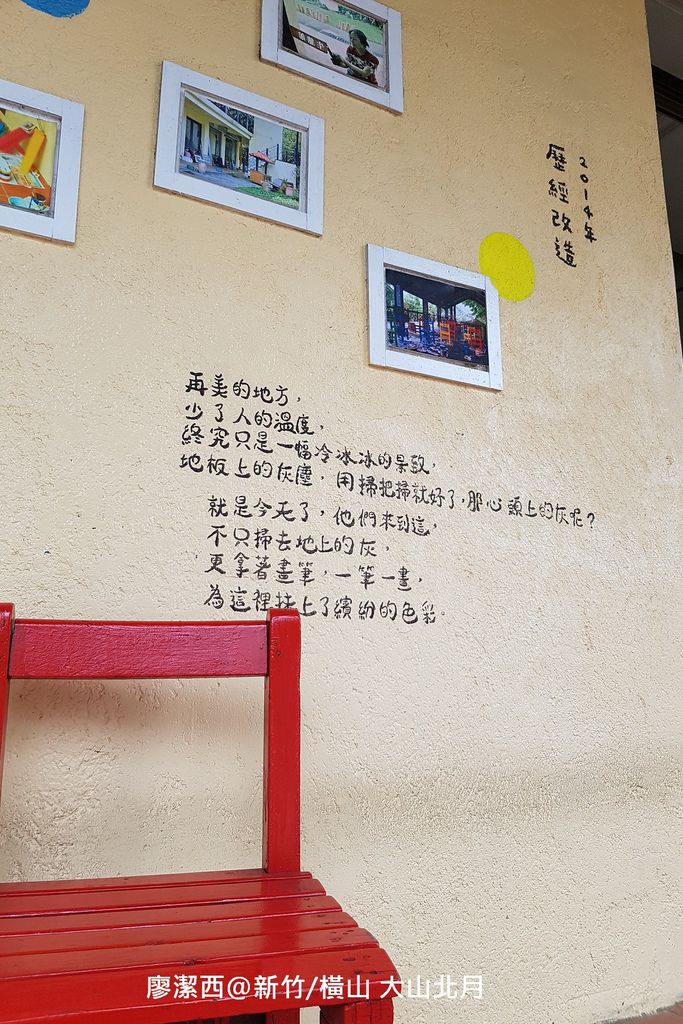 2014年
歷經改造
再美的地方，
少了人的溫度，
終究只是一幅冷冰冰的景致，
地板上的灰塵，用掃把掃就好了，那心頭上的灰呢？
就是今天了，他們來到這，
不只掃去地上的灰，
更拿著畫筆，一筆一畫，
為這裡抹上了繽紛的色彩。
廖潔西@新竹/橫山 大山北月